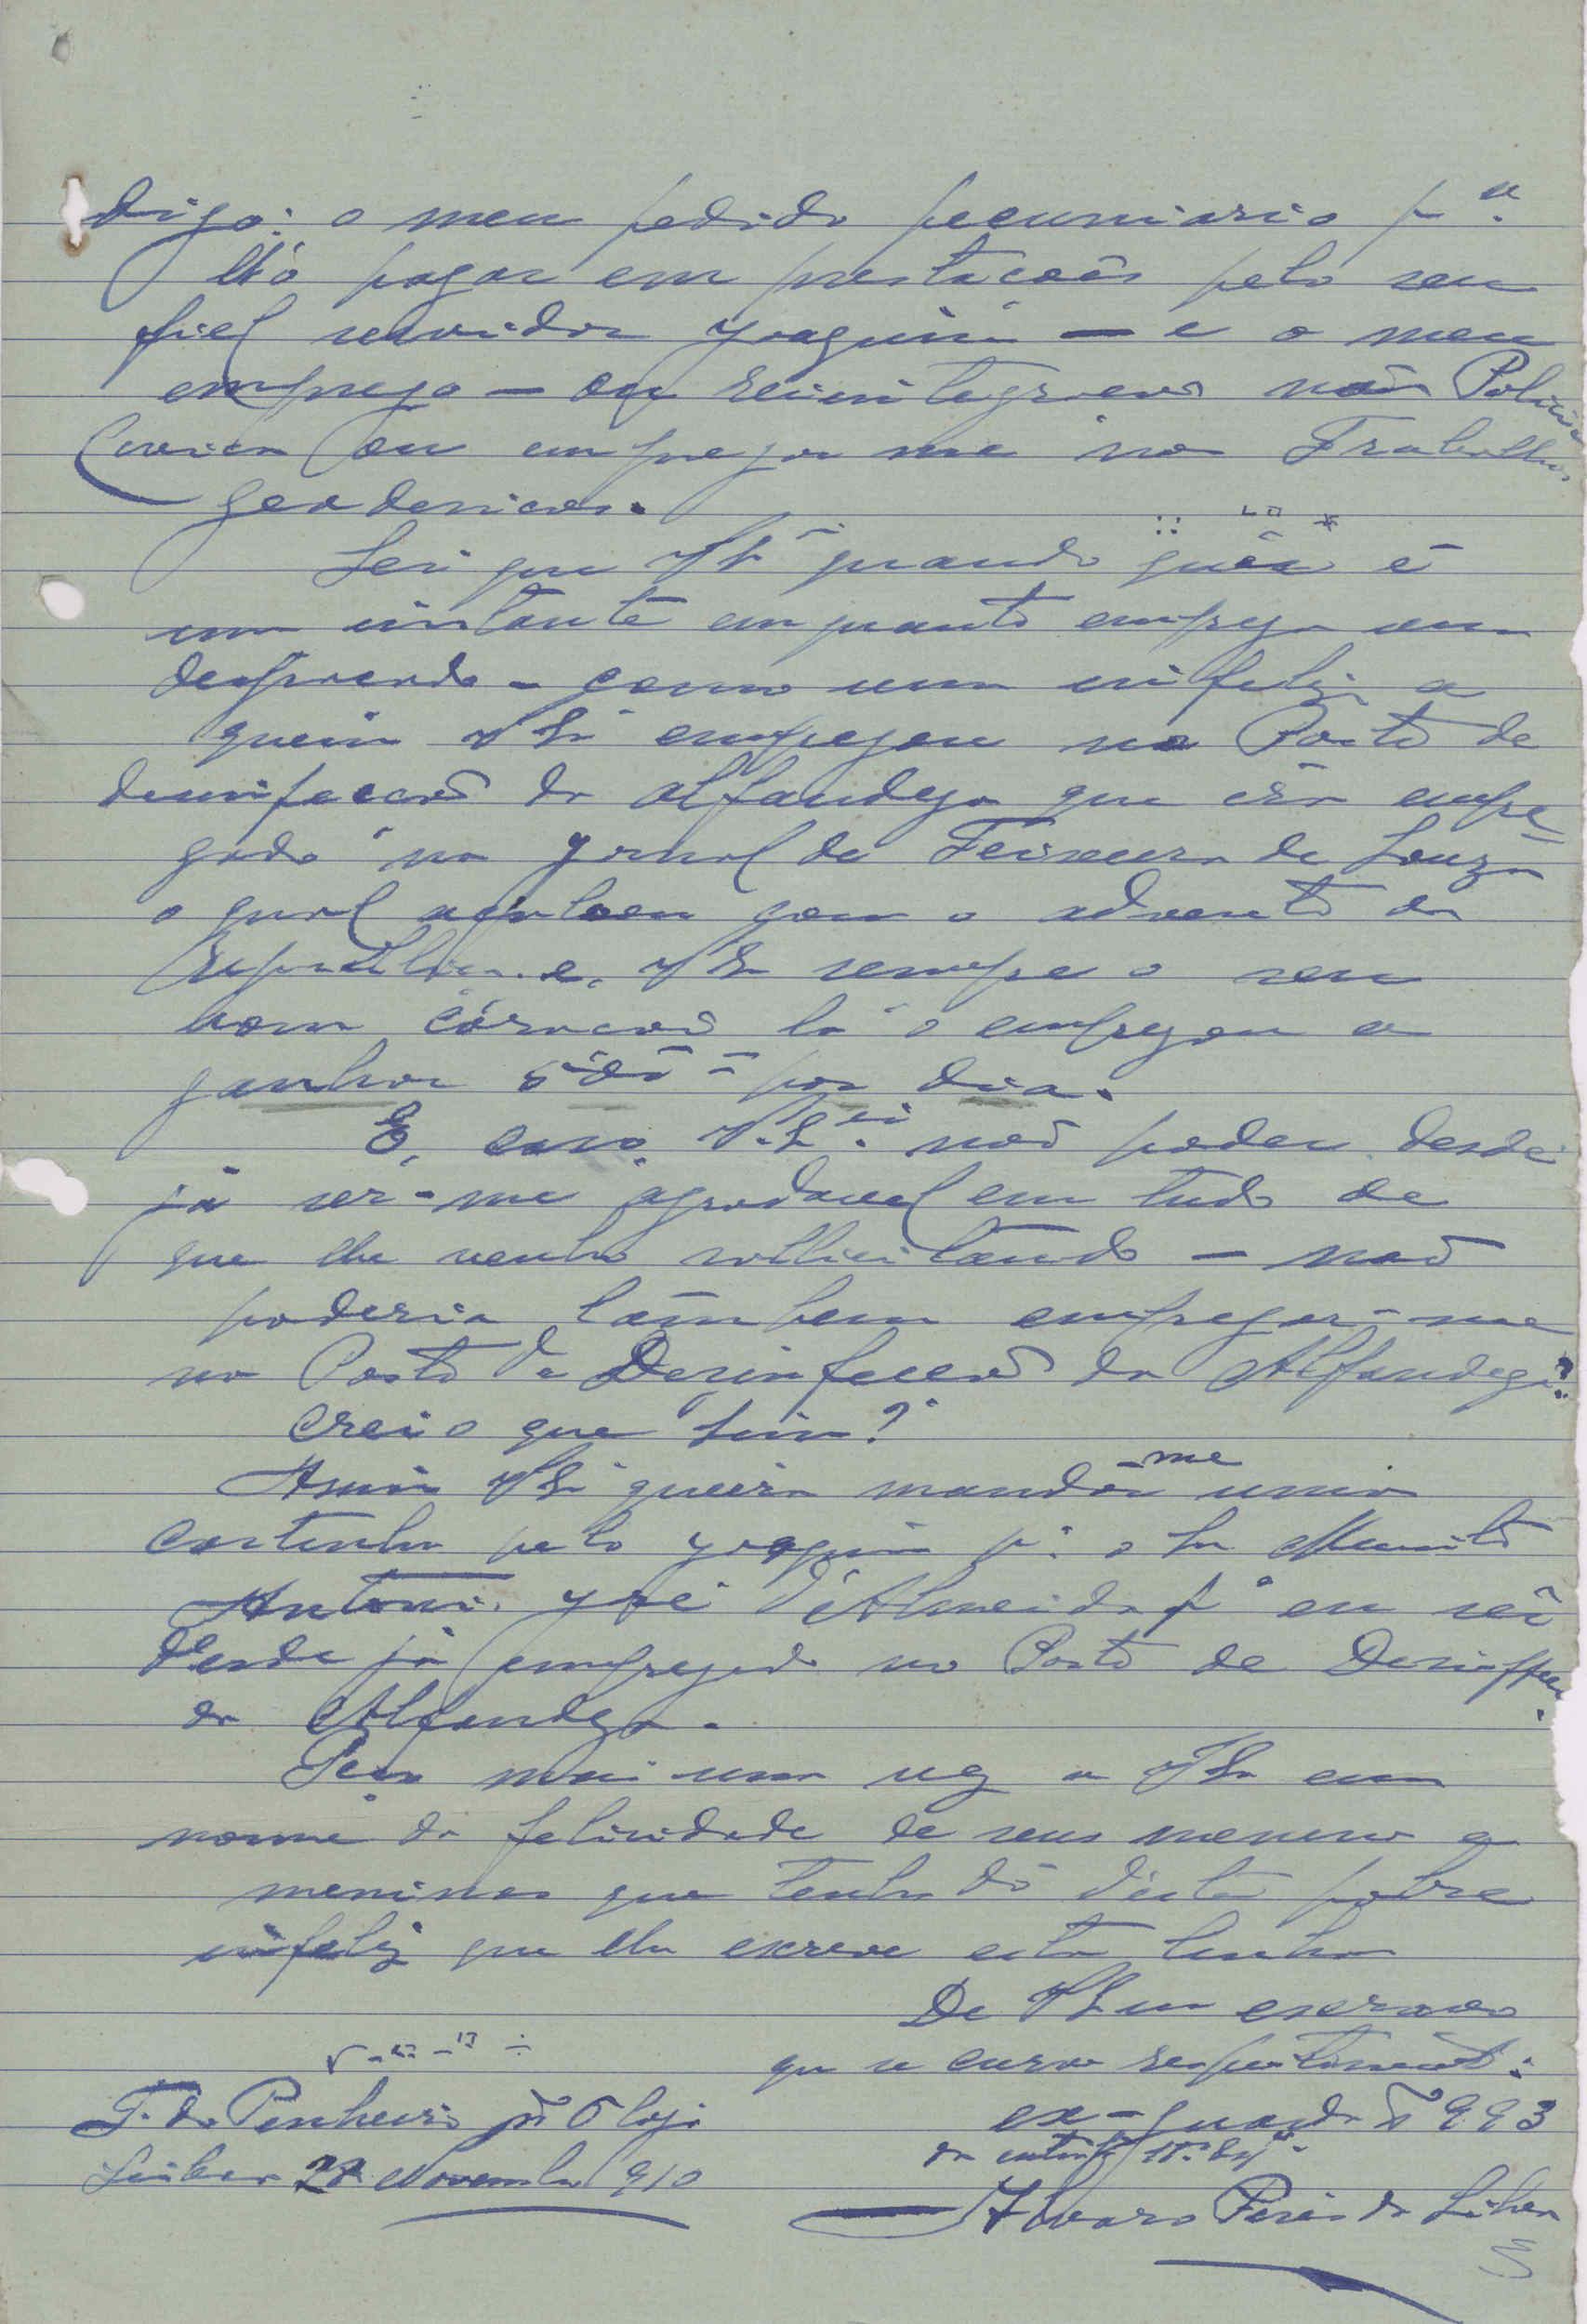 digo: o meu pedido pecuniario p.ª
lh'o pagar em prestacões pelo seu
fiel servidor Joaquim — e o meu
emprego — ou reintegrado na Policia
Civica ou empregar me nos Trabalhos
geodesicos.
Sei que VSª quando quer é
um instante emquanto emprega um
desgraçado - como um infeliz a
quem VSª empregou no Posto de
desinfeccaõ da Alfandega que era empre
gado no Jornal de Teixeira de Souza
o qual acabou com o advento da
Republica. e, VSª sempre o seu
bom coracaõ lá o empregou a
ganhar por dia.
E, caso, V.Sª. naõ poder desde
já ser-me agradavel em tudo de
que lhe venho sollicitando — naõ
poderia tambem empregar-me
no Posto de Desinfeccaõ da Alfandega?
creio que sim?
Assim VSª queira mandar-me uma
cartinha pelo Joaquim p.ª o Sr.
Antonio José d'Almeida pª eu ser
desde já empregado no Posto de
da Alfandega.
Peço mais uma vez a VSª em
nome da felicidade de seus meninos e
meninas que tenha dó d'este pobre
infeliz que lhe escreve esta
De VSª um escravo
que se curva respeitosament:
ex-guarda nº 993
da
Alvaro Peres da Silva
T. do Penheiro nº 6 loja
Lisboa 28 Novembro 910